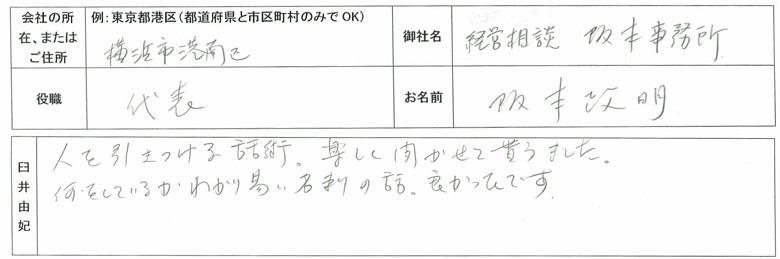 会社の所在、またはご住所
例：東京都港区（都道府県と市区町村のみでOK）
横浜市港南区
御社名
経営相談 阪本事務所
役職
代表
お名前
阪本 明
臼井由妃
人を引きつける話術。楽しく聞かせて貰うました。
何をしているかわかり易い名刺の話。良かったです